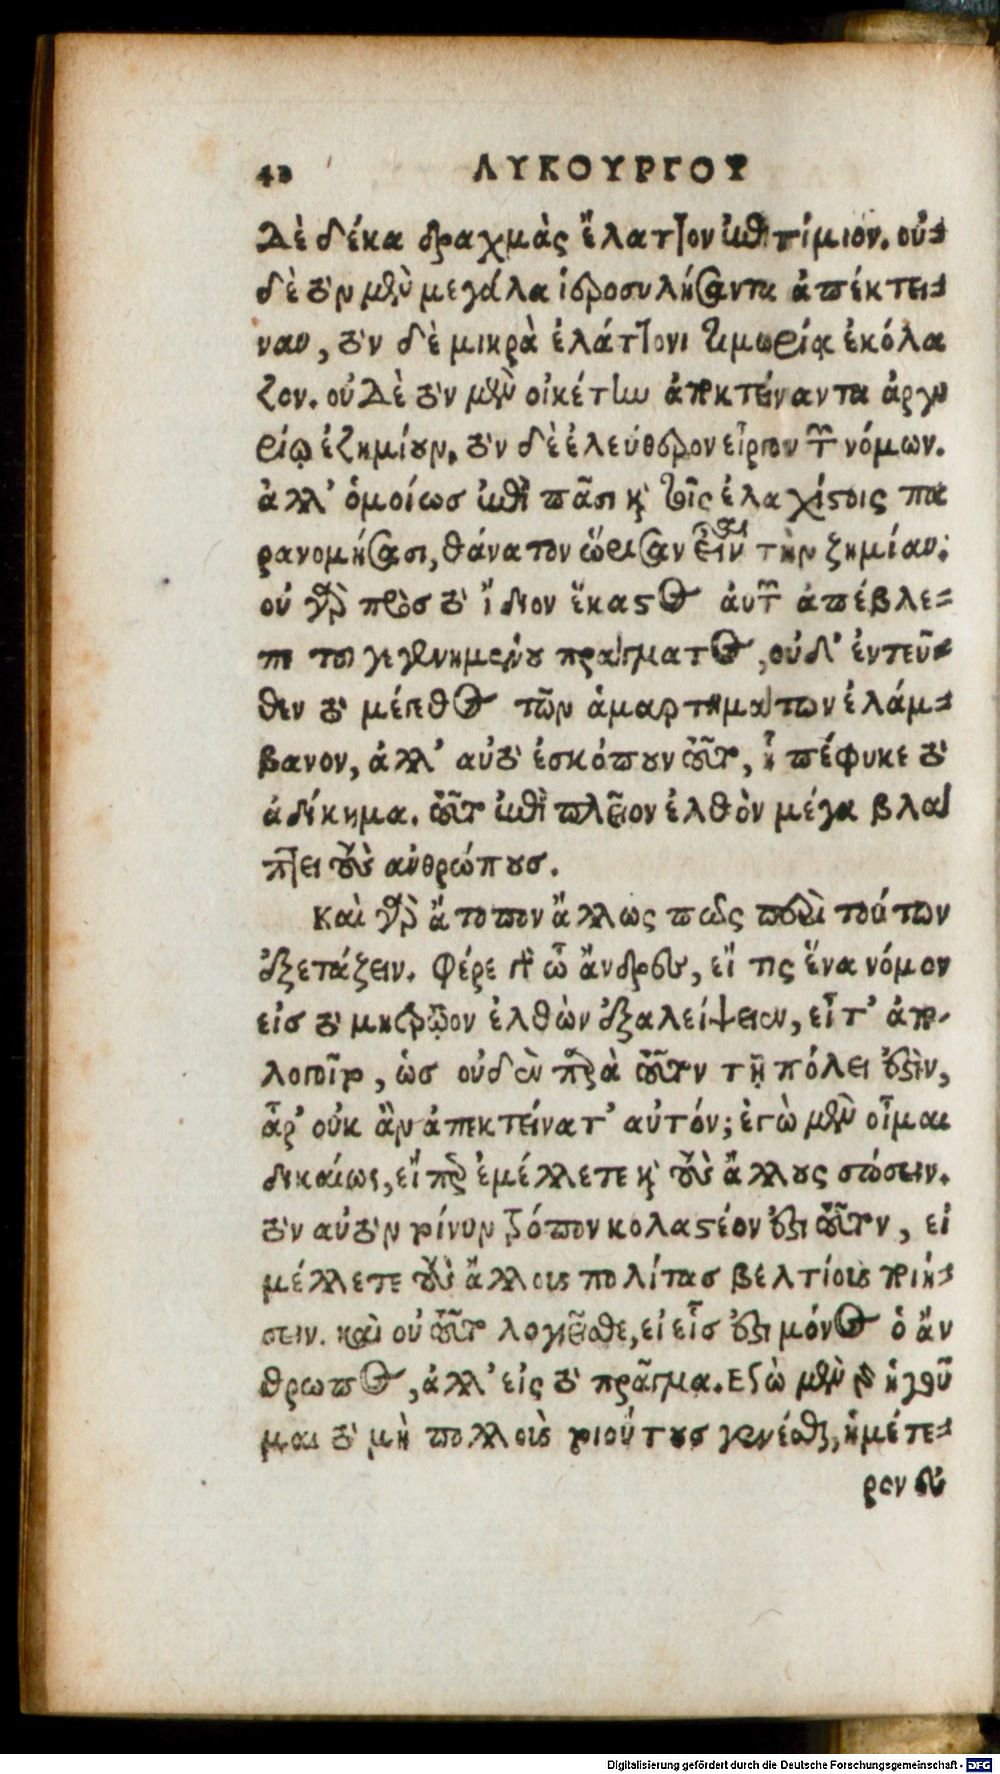 42 ΛΥΚΟΥΡΓΟΥ
δὲ δέκα δραχμὰς ἔλαττον ἐπιτίμιον. οὐ-
δὲ τὸν μὲν μεγάλα ἱεροσυλήσαντα ἀπέκτει-
ναν, τὸν δὲ μικρὰ ἐλάττονι τιμωρίᾳ ἐκόλα
ζον. οὐδὲ τὸν μὲν οἰκέτην ἀποκτείναντα ἀργυ
ρίῳ ἐζημίουν, τὸν δὲ ἐλεύθερον εἶργον τῶν νόμων.
ἀλλ' ὁμοίως ἐπὶ πᾶσι καὶ τοῖς ἐλαχίστοις πα
ρανομήσασι, θάνατον ὥρισαν εἶναι τὴν ζημίαν.
οὐ γὰρ πρὸς τὸ ἴδιον ἕκαστος αὐτῶν ἀπέβλε-
πε τοῦ γεγενημένου πράγματος, οὐδ' ἐντεῦ-
θεν τὸ μέγεθος τῶν ἁμαρτημάτων ἐλάμ-
βανον, ἀλλ' αὐτὸ ἐσκόπουν τοῦτο, ἢ πέφυκε τὸ
ἀδίκημα. τοῦτο ἐπὶ πλεῖον ἐλθὸν μέγα βλά
πτει τοὺς ἀνθρώπους.
Καὶ γὰρ ἄτοπον ἄλλως πως περὶ τούτων
ἐξετάζειν. Φέρε γὰρ ὦ ἄνδρες, εἴ τις ἕνα νόμον
εἰς τὸ μητρῷον ἐλθὼν ἐξαλείψειεν, εἶτ' ἀπο-
λογοῖτο, ὡς οὐδὲν παρὰ τοῦτον τῇ πόλει ἐστὶν,
ἆρ' οὐκ ἂν ἀπεκτείνατ' αὐτόν; ἐγὼ μὲν οἶμαι
δικαίως, εἴπερ ἐμέλλετε καὶ τοὺς ἄλλους σώσειν.
τὸν αὐτὸν τοίνυν τρόπον κολαστέον ἐστὶ τοῦτον, εἰ
μέλλετε τοὺς ἄλλους πολίτας βελτίους ποιή-
σειν. καὶ οὐ τοῦτο λογιεῖσθε, εἰ εἷς ἐστι μόνος ὁ ἄν
θρωπος, ἀλλ' εἰς τὸ πρᾶγμα. Ἐγὼ μὲν γὰρ ἡγοῦ
μαι τὸ μὴ πολλοὺς τοιούτους γενέσθαι, ἡμέτε-
ρον εὐ
Digitalisierung gefördert durch die Deutsche Forschungsgemeinschaft - DFG